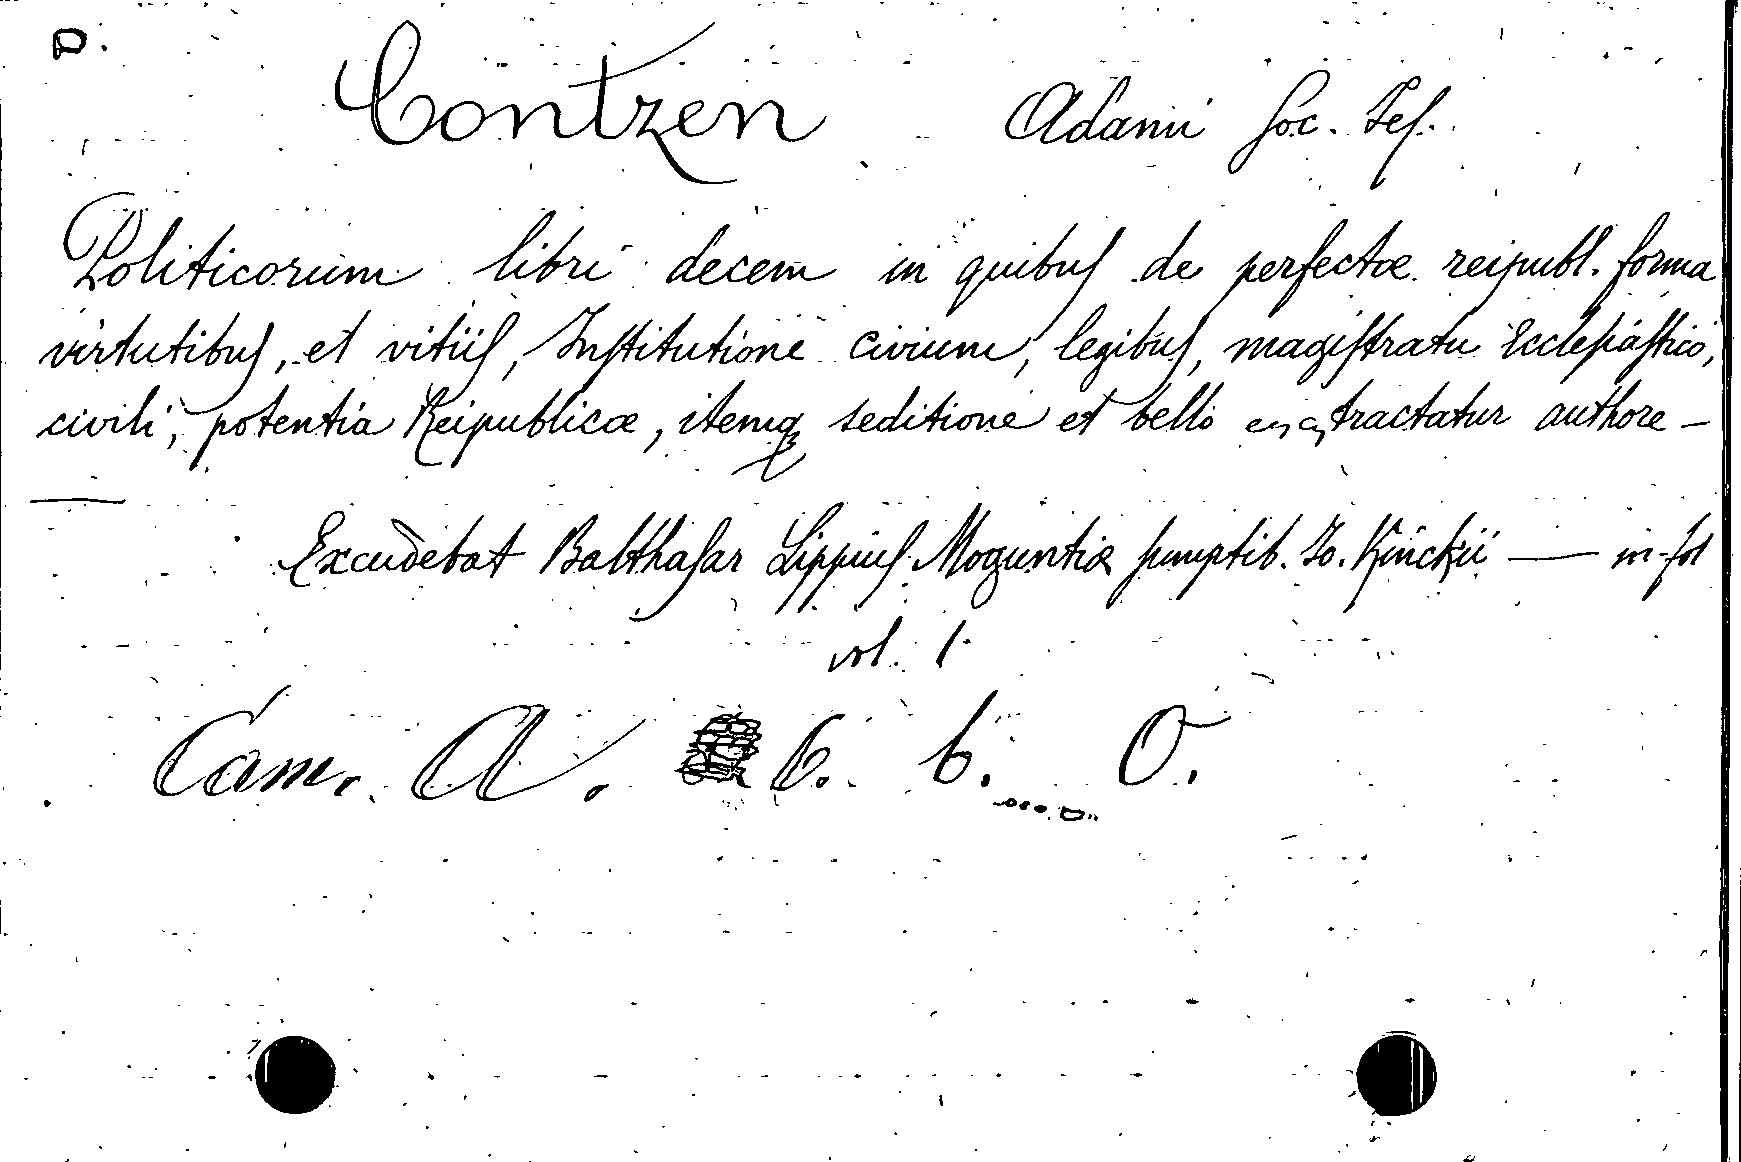 D.
Contzen Adami Soc. Jes.
Politicorum libri decem in quibus de perfectæ reipubl. forma
virtutibus, et vitiis, Institutione civium, legibus, magistratu Ecclesiastico,
civili, potentia Reipublicæ, itemq seditione et bello tractatur authore —
Excudebat Balthasar Lippius Moguntiæ sumptib. Jo. Kinckii — in-fol
vol. 1
Cam. A. 6. b. O.